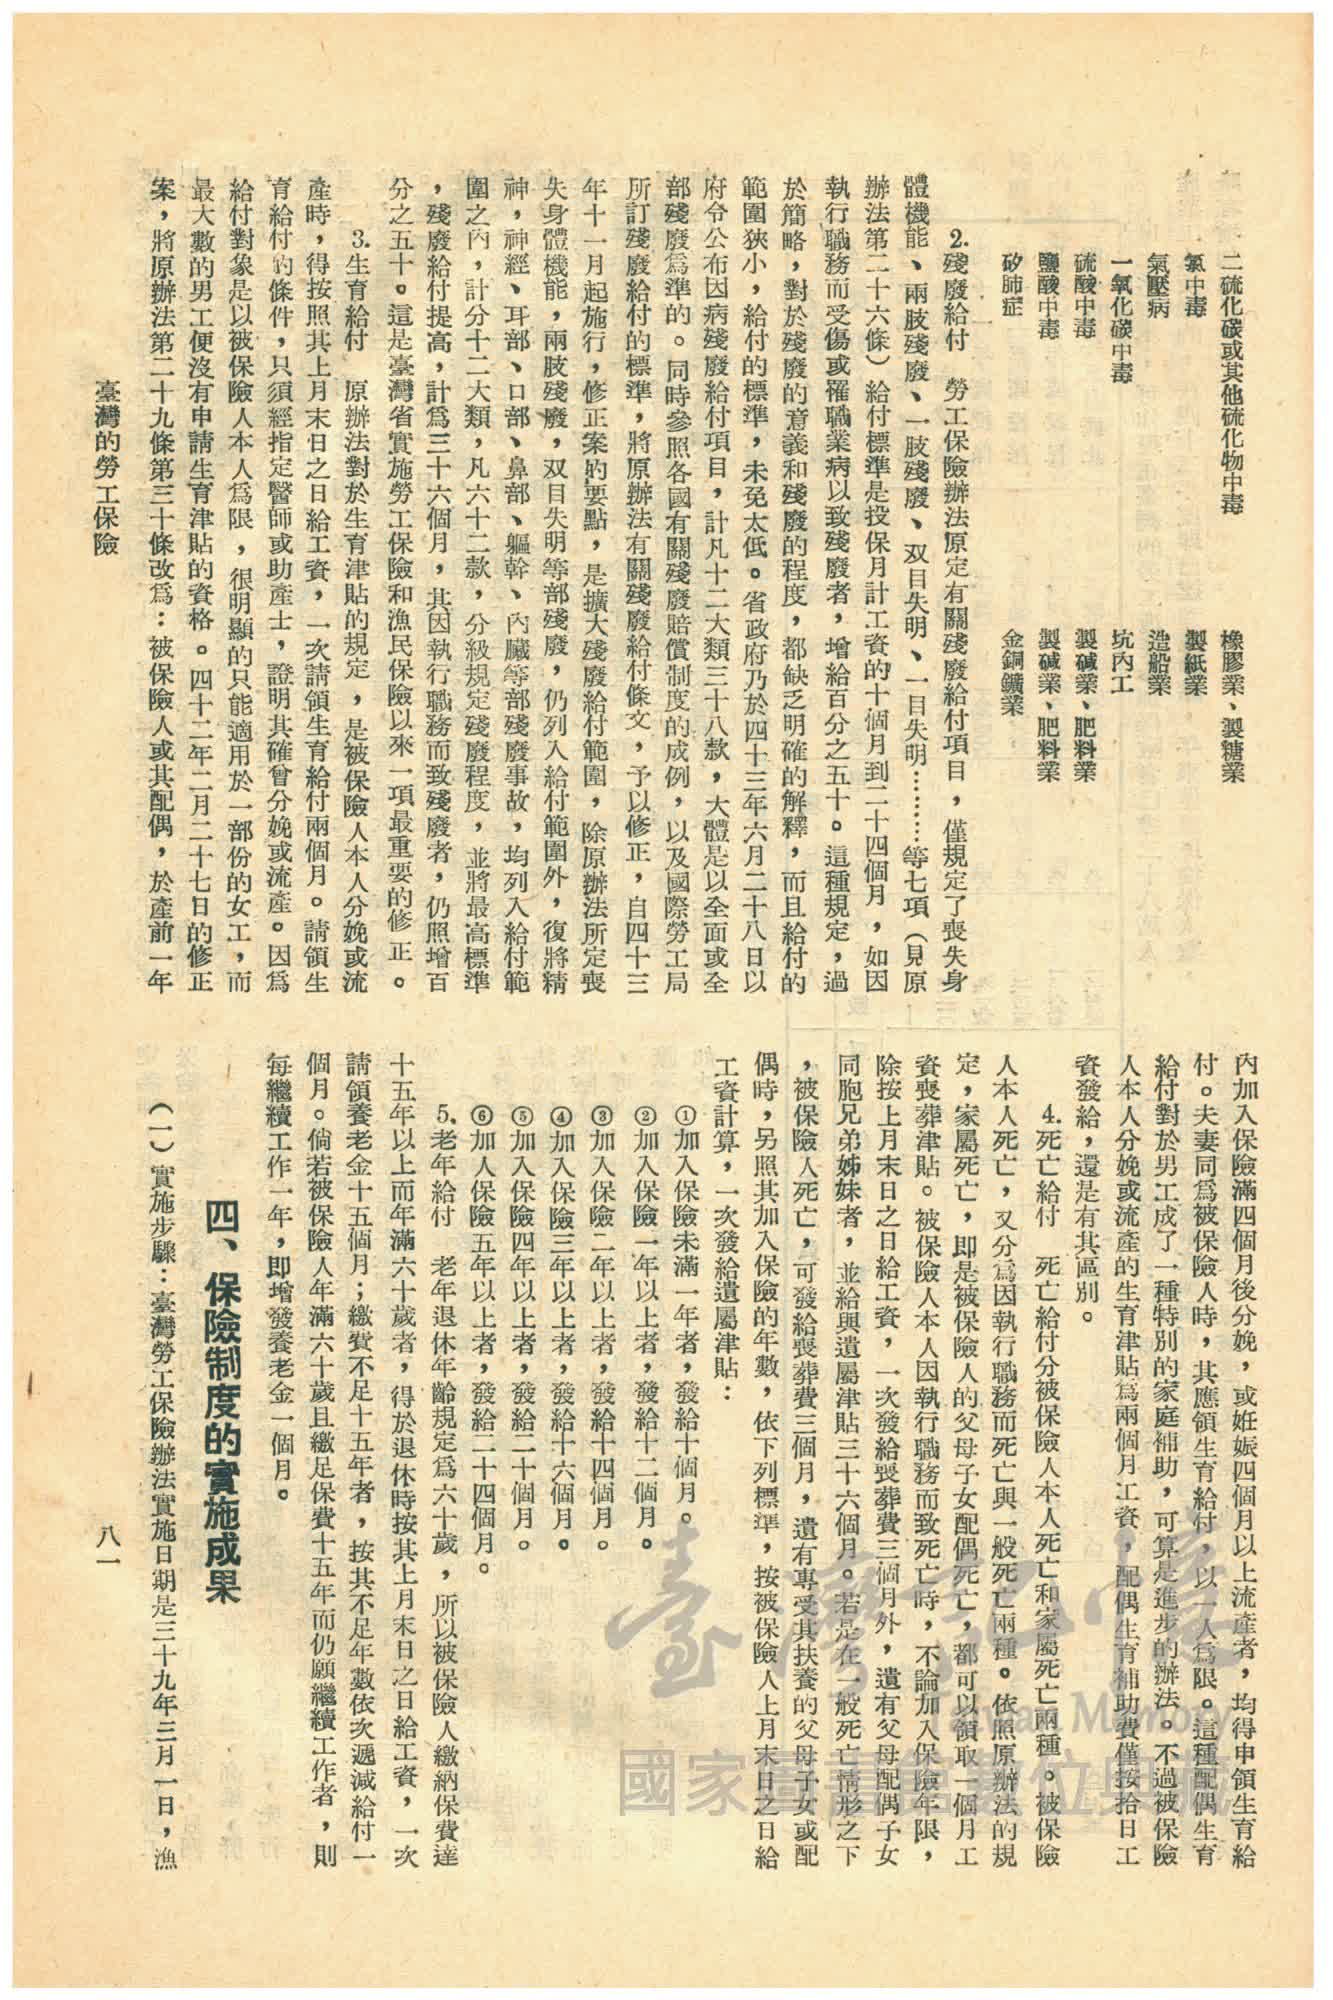 二硫化碳或其他硫化物中毒　橡膠業、製糖業
氯中毒　製紙業
氣壓病　造船業
一氧化碳中毒　坑內工
硫酸中毒　製碱業、肥料業
鹽酸中毒　製碱業、肥料業
矽肺症　金銅鑛業
2.殘廢給付　勞工保險辦法原定有關殘廢給付項目，僅規定了喪失身
體機能、兩肢殘廢、一肢殘廢、双目失明、一目失明………等七項（見原
辦法第二十六條）給付標準是投保月計工資的十個月到二十四個月，如因
執行職務而受傷或罹職業病以致殘廢者，增給百分之五十。這種規定，過
於簡略，對於殘廢的意義和殘廢的程度，都缺乏明確的解釋，而且給付的
範圍狹小，給付的標準，未免太低。省政府乃於四十三年六月二十八日以
府令公布因病殘廢給付項目，計凡十二大類三十八款，大體是以全面或全
部殘廢爲準的。同時參照各國有關殘廢賠償制度的成例，以及國際勞工局
所訂殘廢給付的標準，將原辦法有關殘廢給付條文，予以修正，自四十三
年十一月起施行，修正案的要點，是擴大殘廢給付範圍，除原辦法所定喪
失身體機能，兩肢殘廢，双目失明等部殘廢，仍列入給付範圍外，復將精
神，神經、耳部、口部、鼻部、軀幹、內臟等部殘廢事故，均列入給付範
圍之內，計分十二大類，凡六十二款，分級規定殘廢程度，並將最高標準
，殘廢給付提高，計爲三十六個月，其因執行職務而致殘廢者，仍照增百
分之五十。這是臺灣省實施勞工保險和漁民保險以來一項最重要的修正。
3.生育給付　原辦法對於生育津貼的規定，是被保險人本人分娩或流
產時，得按照其上月末日之日給工資，一次請領生育給付兩個月。請領生
育給付的條件，只須經指定醫師或助產士，證明其確曾分娩或流產。因爲
給付對象是以被保險人本人爲限，很明顯的只能適用於一部份的女工，而
最大數的男工便沒有申請生育津貼的資格。四十二年二月二十七日的修正
案，將原辦法第二十九條第三十條改爲：被保險人或其配偶，於產前一年
臺灣的勞工保險
內加入保險滿四個月後分娩，或妊娠四個月以上流產者，均得申領生育給
付。夫妻同爲被保險人時，其應領生育給付，以一人爲限。這種配偶生育
給付對於男工成了一種特別的家庭補助，可算是進步的辦法。不過被保險
人本人分娩或流產的生育津貼爲兩個月工資，配偶生育補助費僅按拾日工
資發給，還是有其區別。
4.死亡給付　死亡給付分被保險人本人死亡和家屬死亡兩種。被保險
人本人死亡，又分爲因執行職務而死亡與一般死亡兩種。依照原辦法的規
定，家屬死亡，即是被保險人的父母子女配偶死亡，都可以領取一個月工
資喪葬津貼。被保險人本人因執行職務而致死亡時，不論加入保險年限，
除按上月末日之日給工資，一次發給喪葬費三個月外，遺有父母配偶子女
同胞兄弟姊妹者，並給與遺屬津貼三十六個月。若是在一般死亡情形之下
，被保險人死亡，可發給喪葬費三個月，遺有專受其扶養的父母子女或配
偶時，另照其加入保險的年數，依下列標準，按被保險人上月末日之日給
工資計算，一次發給遺屬津貼：
①加入保險未滿一年者，發給十個月。
②加入保險一年以上者，發給十二個月。
③加入保險二年以上者，發給十四個月。
④加入保險三年以上者，發給十六個月。
⑤加入保險四年以上者，發給二十個月。
⑥加入保險五年以上者，發給二十四個月。
5.老年給付　老年退休年齡規定爲六十歲，所以被保險人繳納保費達
十五年以上而年滿六十歲者，得於退休時按其上月末日之日給工資，一次
請領養老金十五個月；繳費不足十五年者，按其不足年數依次遞減給付一
個月。倘若被保險人年滿六十歲且繳足保費十五年而仍願繼續工作者，則
每繼續工作一年，即增發養老金一個月。
四、保險制度的實施成果
（一）實施步驟：臺灣勞工保險辦法實施日期是三十九年三月一日，漁
八一
臺灣記憶
Taiwan Memory
國家圖書館數位典藏